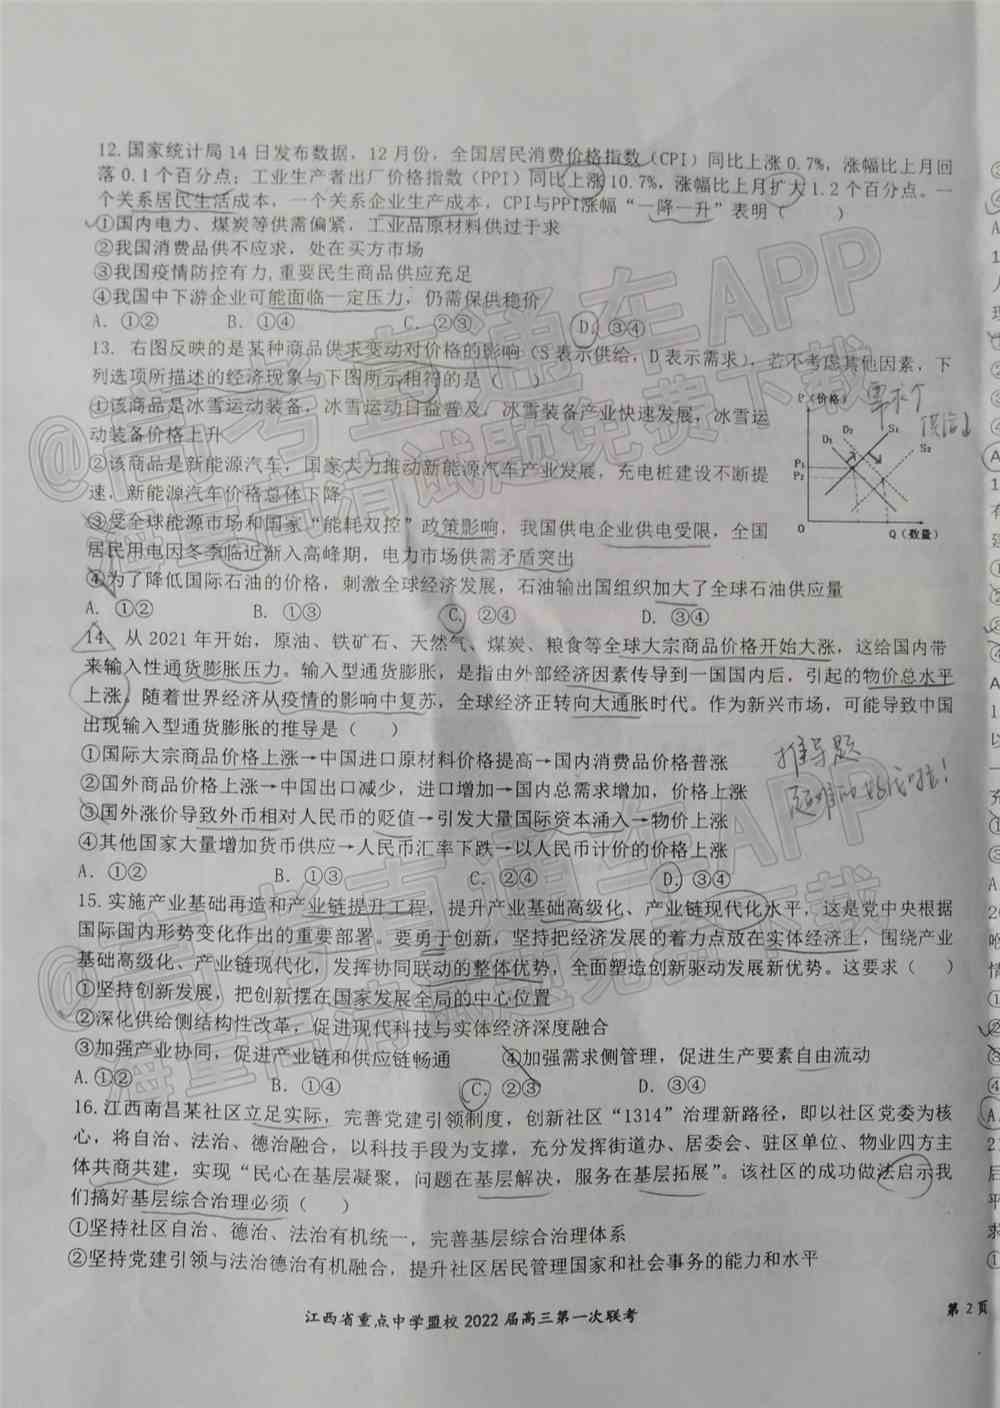 12. 国家统计局14日发布数据，12月份，全国居民消费价格指数（CPI）同比上涨0.7%，涨幅比上月回
落0.1个百分点；工业生产者出厂价格指数（PPI）同比上涨10.7%，涨幅比上月扩大1.2个百分点。一
个关系居民生活成本，一个关系企业生产成本，CPI与PPI涨幅“一降一升”表明（　　）
①国内电力、煤炭等供需偏紧，工业品原材料供过于求
②我国消费品供不应求，处在买方市场
③我国疫情防控有力,重要民生商品供应充足
④我国中下游企业可能面临一定压力，仍需保供稳价
A. ①② B. ①④ C. ②③ D. ③④
13. 右图反映的是某种商品供求变动对价格的影响（S表示供给，D表示需求），若不考虑其他因素，下
列选项所描述的经济现象与下图所示相符的是（　　）
①该商品是冰雪运动装备，冰雪运动日益普及，冰雪装备产业快速发展，冰雪运
动装备价格上升
②该商品是新能源汽车，国家大力推动新能源汽车产业发展，充电桩建设不断提
速，新能源汽车价格总体下降
③受全球能源市场和国家“能耗双控”政策影响，我国供电企业供电受限，全国
居民用电因冬季临近渐入高峰期，电力市场供需矛盾突出
④为了降低国际石油的价格，刺激全球经济发展，石油输出国组织加大了全球石油供应量
P（价格）
D₁ D₂ S₁ S₂
P₁
P₂
0 Q（数量）
A. ①② B. ①③ C. ②④ D. ③④
14. 从2021年开始，原油、铁矿石、天然气、煤炭、粮食等全球大宗商品价格开始大涨，这给国内带
来输入性通货膨胀压力。输入型通货膨胀，是指由外部经济因素传导到一国国内后，引起的物价总水平
上涨。随着世界经济从疫情的影响中复苏，全球经济正转向大通胀时代。作为新兴市场，可能导致中国
出现输入型通货膨胀的推导是（　　）
①国际大宗商品价格上涨→中国进口原材料价格提高→国内消费品价格普涨
②国外商品价格上涨→中国出口减少，进口增加→国内总需求增加，价格上涨
③国外涨价导致外币相对人民币的贬值→引发大量国际资本涌入→物价上涨
④其他国家大量增加货币供应→人民币汇率下跌→以人民币计价的价格上涨
推导题
A. ①② B. ①③ C. ②④ D. ③④
15. 实施产业基础再造和产业链提升工程，提升产业基础高级化、产业链现代化水平，这是党中央根据
国际国内形势变化作出的重要部署。要勇于创新，坚持把经济发展的着力点放在实体经济上，围绕产业
基础高级化、产业链现代化，发挥协同联动的整体优势，全面塑造创新驱动发展新优势。这要求（　　）
①坚持创新发展，把创新摆在国家发展全局的中心位置
②深化供给侧结构性改革，促进现代科技与实体经济深度融合
③加强产业协同，促进产业链和供应链畅通 ④加强需求侧管理，促进生产要素自由流动
A. ①② B. ①④ C. ②③ D. ③④
16. 江西南昌某社区立足实际，完善党建引领制度，创新社区“1314”治理新路径，即以社区党委为核
心，将自治、法治、德治融合，以科技手段为支撑，充分发挥街道办、居委会、驻区单位、物业四方主
体共商共建，实现“民心在基层凝聚，问题在基层解决，服务在基层拓展”。该社区的成功做法启示我
们搞好基层综合治理必须（　　）
①坚持社区自治、德治、法治有机统一，完善基层综合治理体系
②坚持党建引领与法治德治有机融合，提升社区居民管理国家和社会事务的能力和水平
江西省重点中学盟校2022届高三第一次联考
第2页